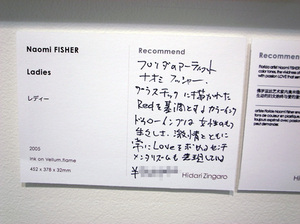 Naomi FISHER
Ladies
レディー
2005
Ink on Vellum,frame
452 x 378 x 32mm
Recommend
フロリダのアーティスト
ナオミ フィッシャー.
プラスチックに描かれた
Redを基調とするカラーインク
ドローイングは女性のもつ
生々しさ、激情とともに
常にLoveを求めるセンチ
メンタリズムも表現している
¥
Hidari Zingaro
Recommend